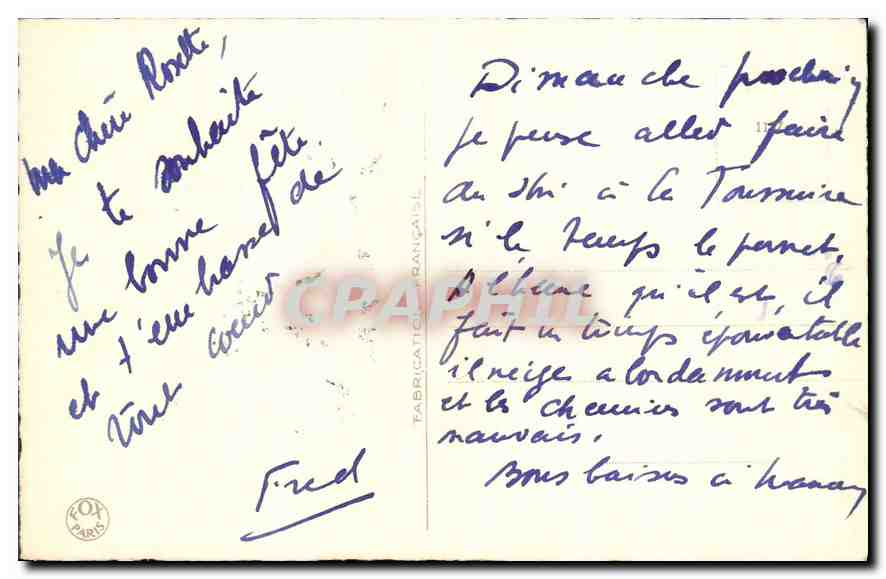 Ma chère Rosette,
Je te souhaite
une bonne fête
et t'embrasse de
tout coeur
Fred
FOX
PARIS
FABRICATION FRANÇAISE
CPAPHIL
Dimanche prochain
je pense aller faire
du ski à la Toussuire
si le temps le permet,
A l'heure qu'il est, il
fait un temps épouvantable
il neige abondamment
et les chemins sont très
mauvais.
Bons baisers à maman